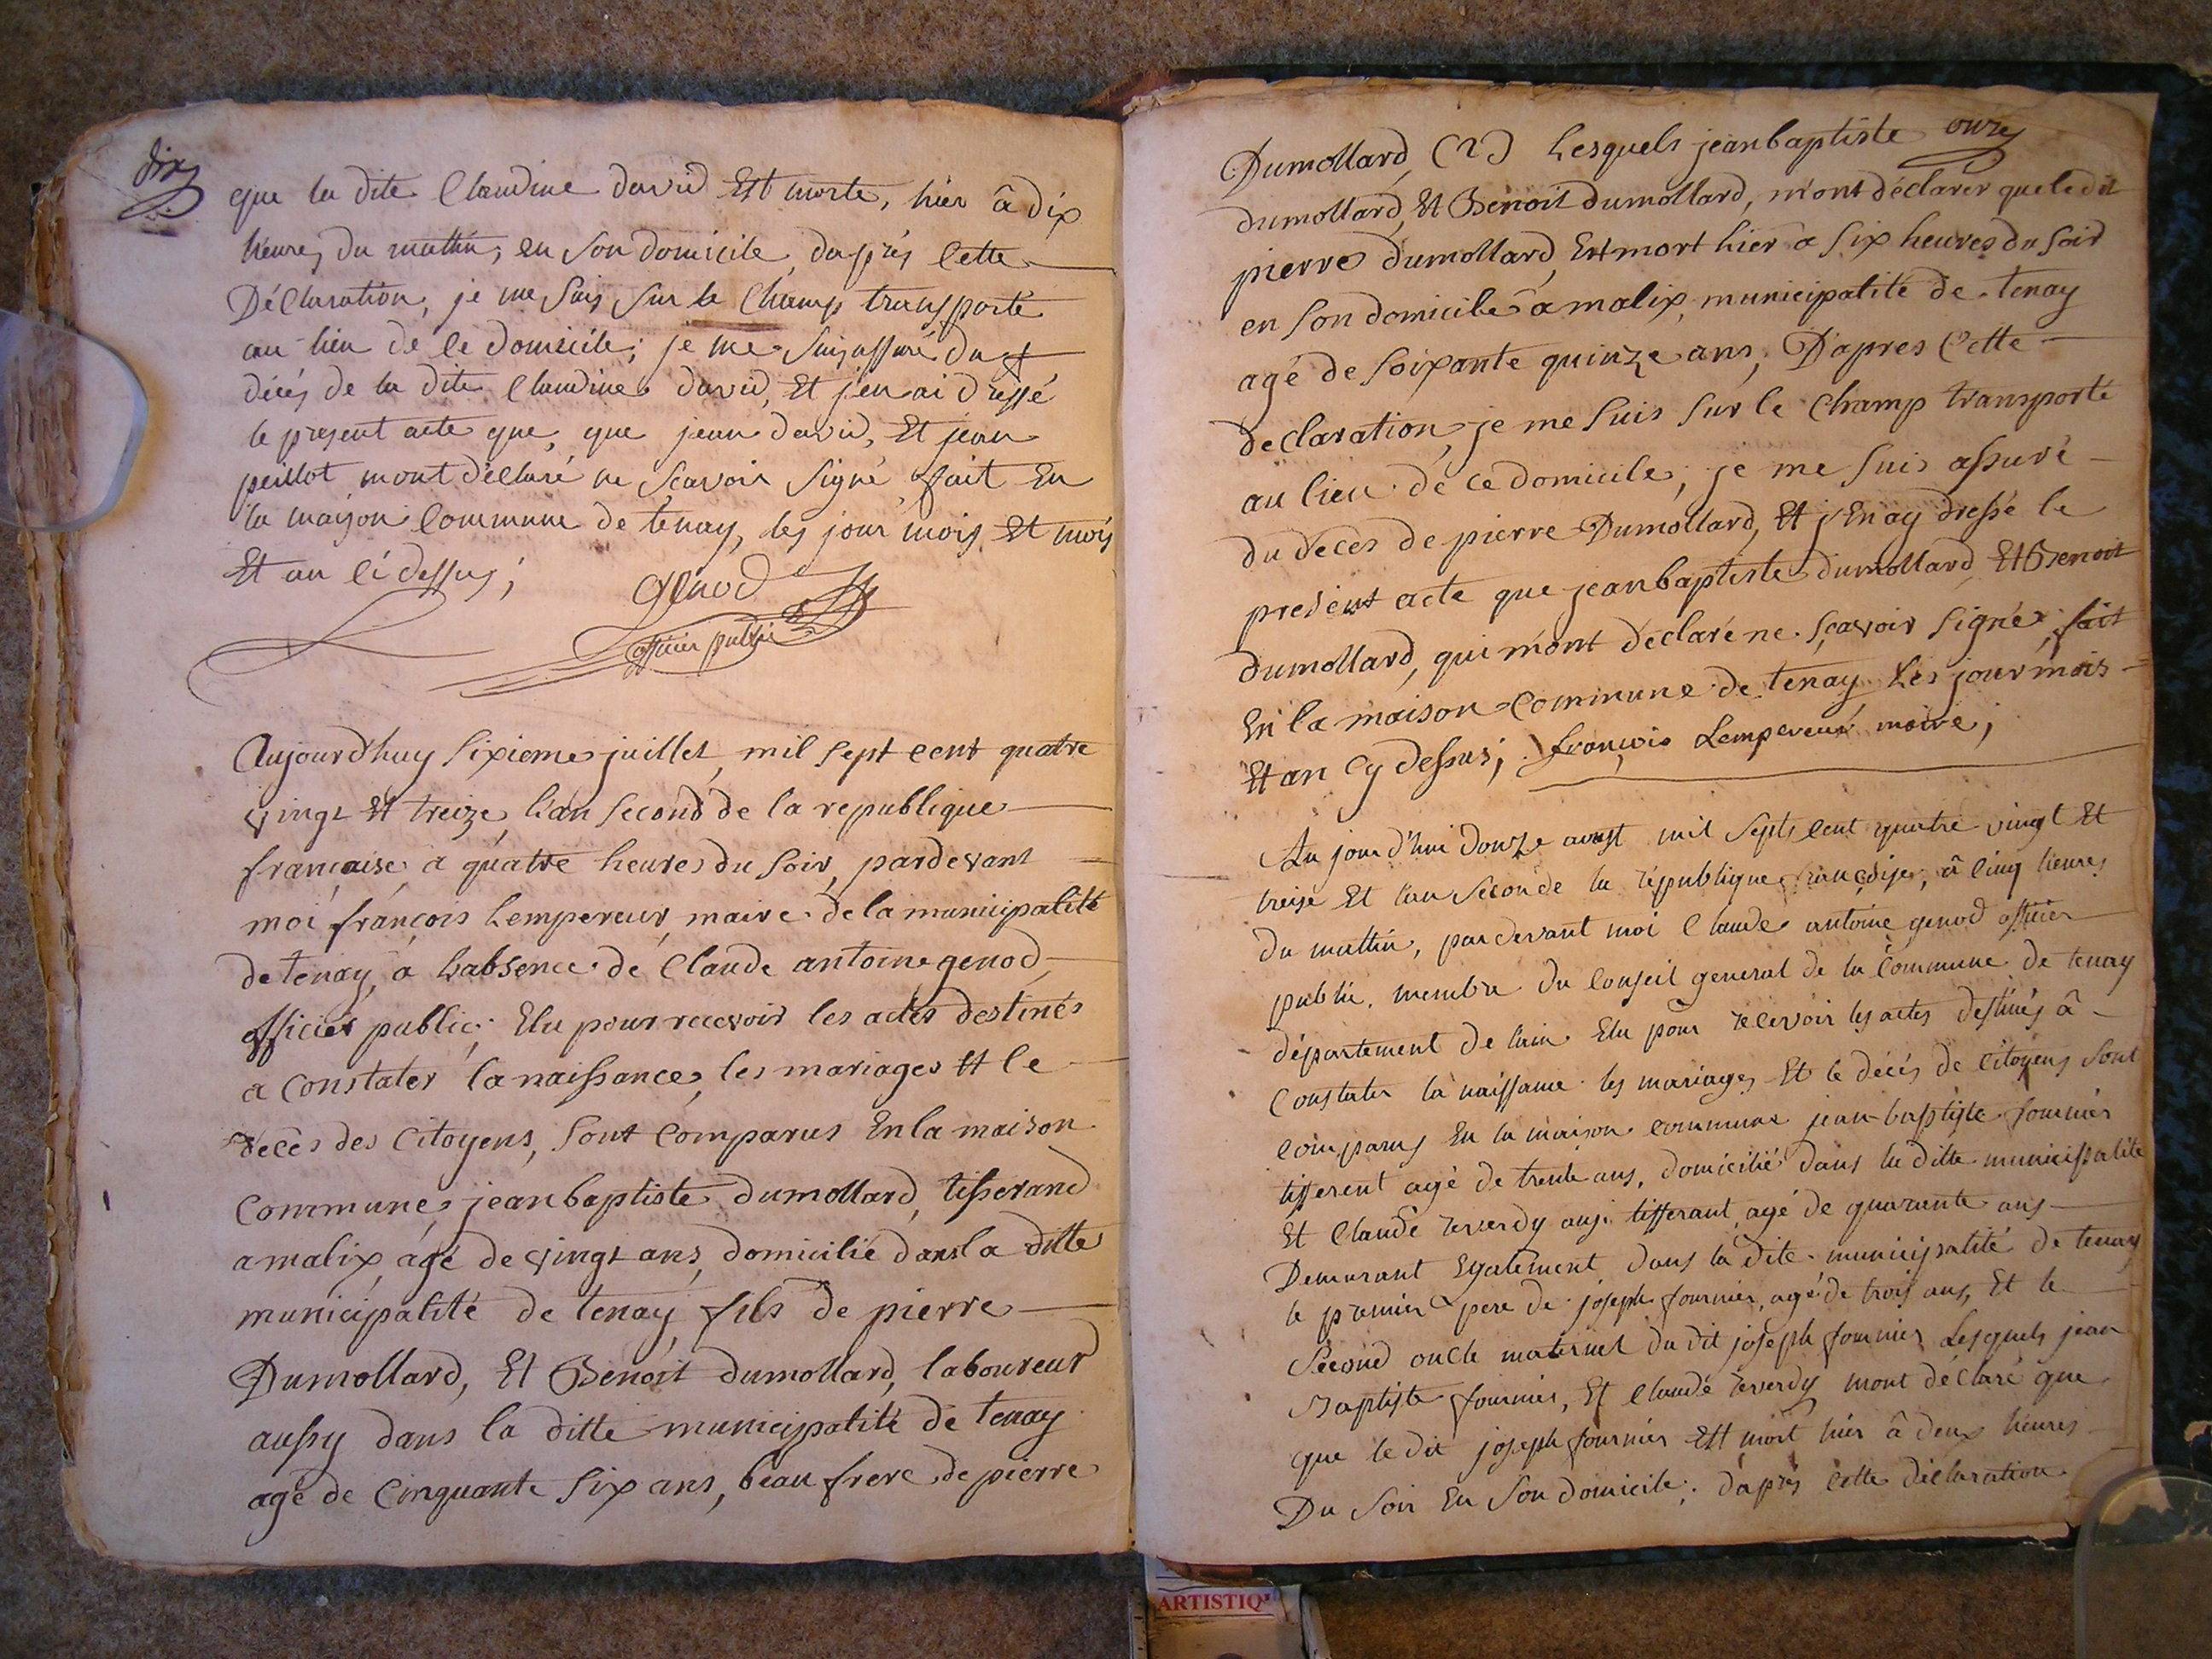 dix
que la dite Claudine david Est morte, hier â dix
heures du mattin, en son domicile, daprés Cette
Déclaration, je me suis sur le Champ transporté
au lieu de ce domicile; je me suis assuré du
décés de la dite Claudine david, Et j'en ai dressé
le present acte que, que jean david, Et jean
peillot mont déclaré ne scavoir signé, fait En
la maison Commune de tenay, les jour mois Et mois
Et an ci dessus;
genod
officier public
Aujourd'huy sixieme juillet, mil sept cent quatre
vingt Et treize, l'an second de la republique
francaise, a quatre heures du soir, pardevant
moi françois Lempereur, maire de la municipalité
de tenay, a L'absence de Claude antoine genod,
officier public, Elu pour recevoir les actes destinés
a Constater la naissance, les mariages Et le
décès des Citoyens, sont Comparus En la maison
Commune, jean baptiste dumollard, tisserand
a malix, âgé de vingt ans, domicilié dans la ditte
municipalité de tenay, fils de pierre
Dumollard, Et Benoit dumollard, laboureur
aussy dans la ditte municipalité de tenay
agé de Cinquante six ans, beau frere de pierre
onze
Dumollard, Lesquels jean baptiste
dumollard, Et Benoit dumollard, m'ont déclarer que le dit
pierre dumollard, Est mort hier a six heures du soir
en son domicile a malix, municipalité de tenay
agé de soixante quinze ans, D'apres Cette
declaration, je me suis sur le Champ transporté
au lieu de ce domicile, je me suis assuré
du décès de pierre Dumollard, Et j'En ay dressé le
present acte que jean baptiste dumollard, Et Benoit
dumollard, qui m'ont déclaré ne sçavoir signé, fait
En la maison Commune de tenay Les jour mois
Et an Cy dessus; françois Lempereur maire;
Au jour d'hui douze aoust mil sept cent quatre vingt Et
treise Et l'an second de la république françaises, â cinq heures
du mattin, pardevant moi Claude antoine genod officier
public, membre du Conseil general de la Commune de tenay
département de lain Elu pour recevoir les actes destinés â
Constater la naissance les mariages Et le décés de Citoyens sont
comparus En la maison commune jean-baptiste fournier
tisserent agé de trente ans, domicilié dans la ditte municipalité
Et Claude reverdy ausi tisserant, agé de quarante ans
Demurant Egalement dans la dite municipalité de tenay
le premier pere de joseph fournier, agé de trois ans, Et le
Second oncle maternel du dit joseph fournier Lesquels jean
Baptiste fournier, Et Claude reverdy mont déclaré que
que le dit joseph fournier Est mort hier â deux heures
Du soir En son domicile; daprés cette déclaration
ARTISTIQ